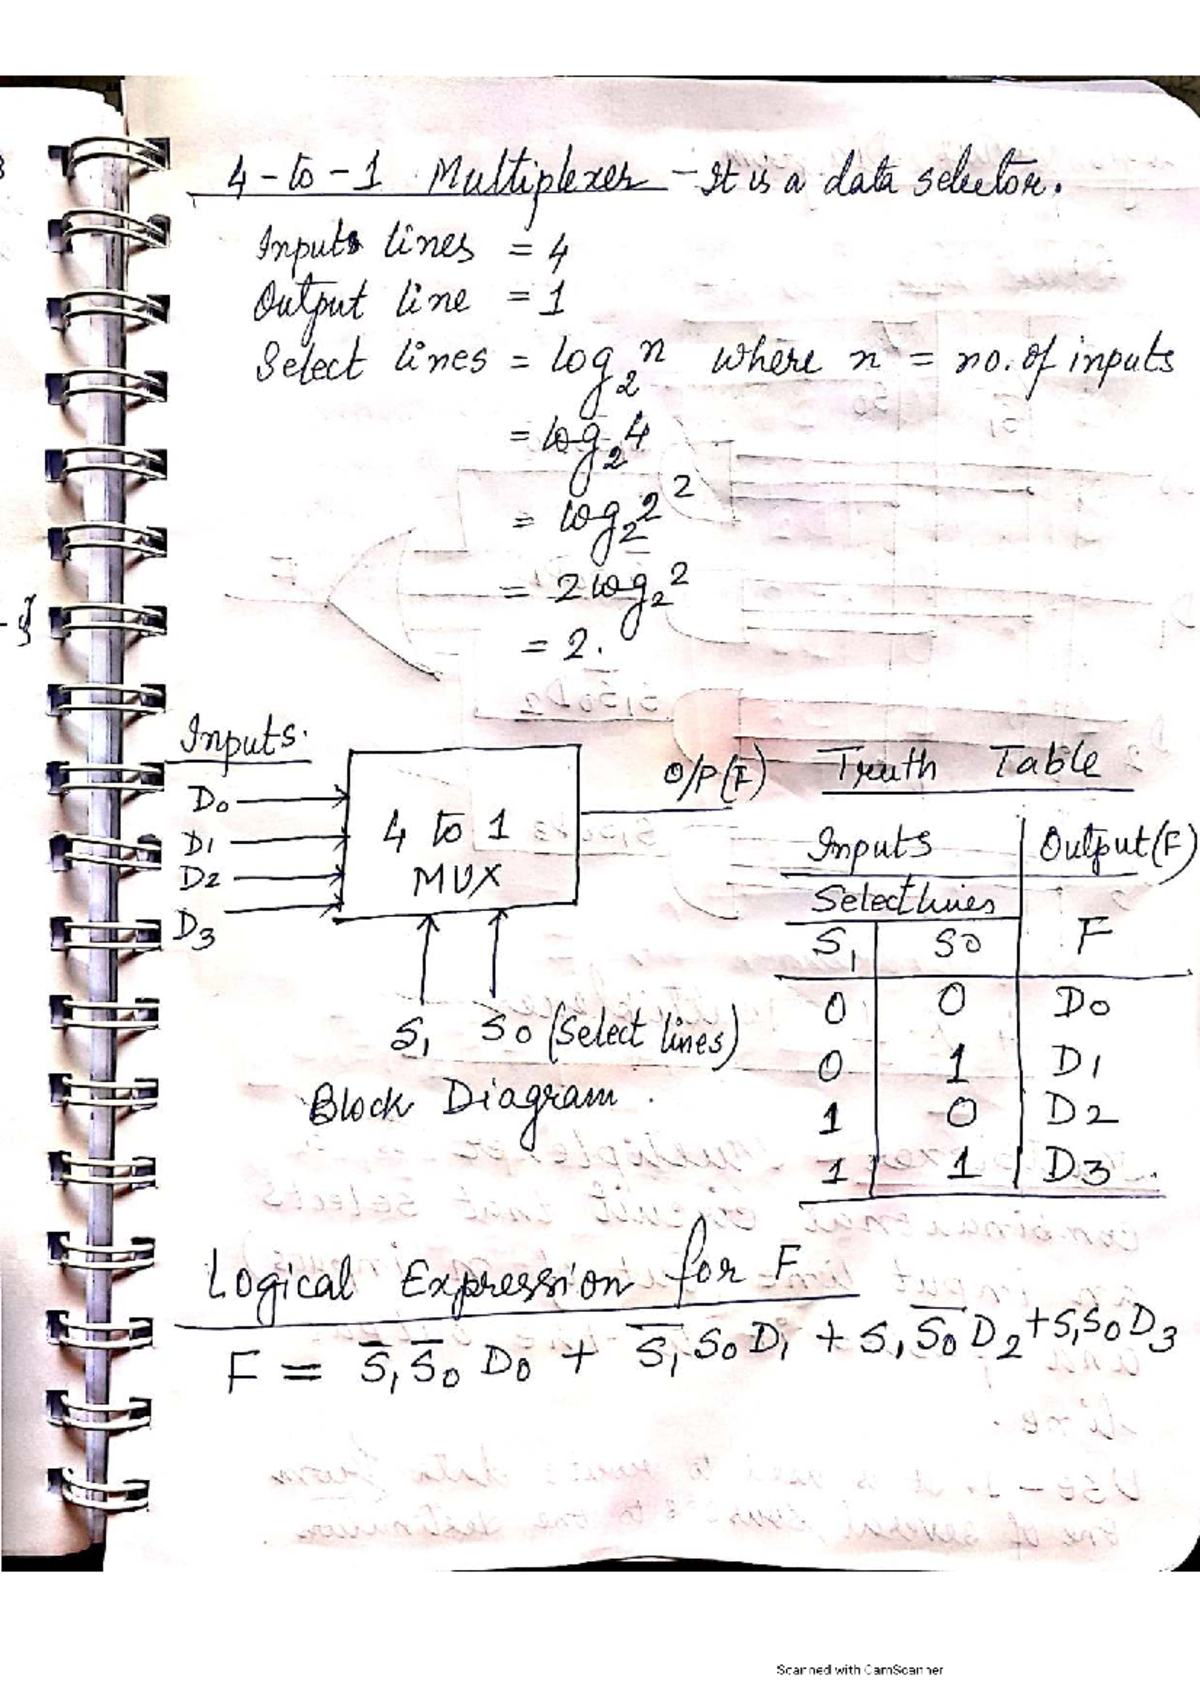 4-to-1 Multiplexer - It is a data selector.
Inputs lines = 4
Output line = 1
Select lines = log₂n where n = no. of inputs
= log₂4
= log₂2²
= 2log₂2
= 2.
Inputs.
D0
D1
D2
D3
4 to 1
MUX
O/P(F)
S₁ S0 (Select lines)
Block Diagram.
Truth Table
Inputs Output(F)
Select lines
S₁ S0 F
0 0 D0
0 1 D1
1 0 D2
1 1 D3
Logical Expression for F
F = S̅₁S̅₀D₀ + S̅₁S₀D₁ + S₁S̅₀D₂ + S₁S₀D₃
Scanned with CamScanner